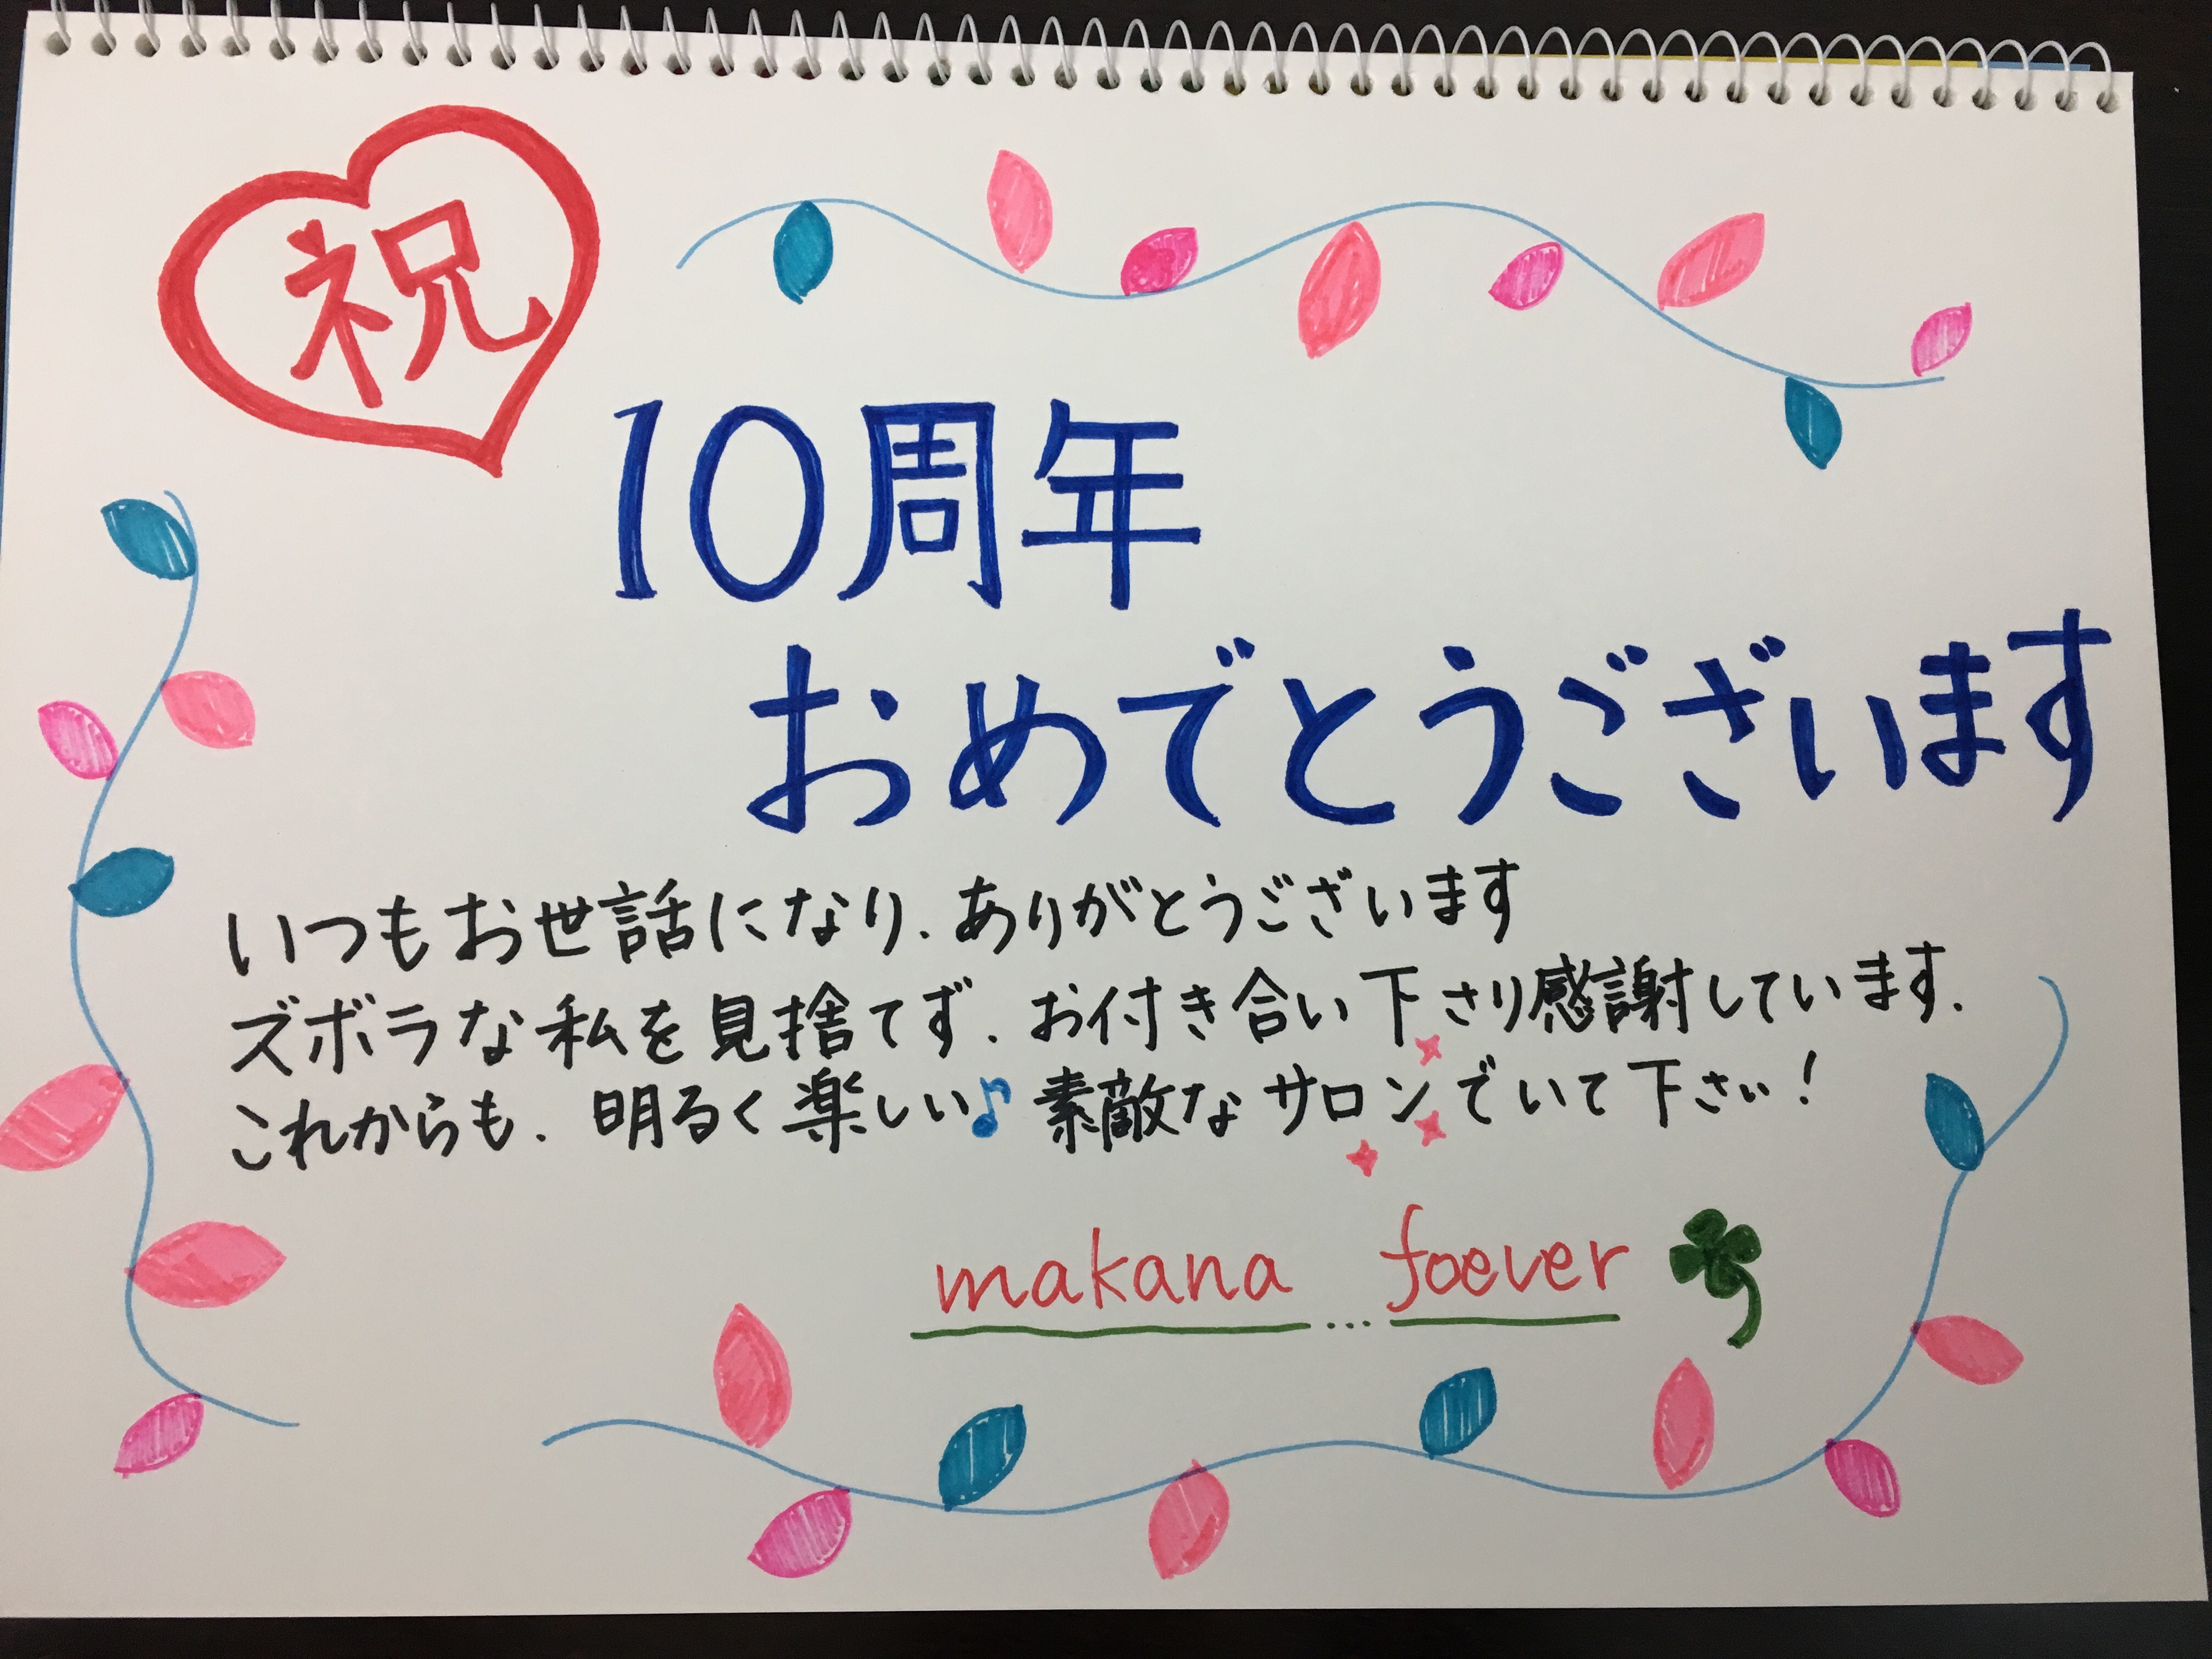 祝
10周年
おめでとうございます
いつもお世話になり、ありがとうございます
ズボラな私を見捨てず、お付き合い下さり感謝しています。
これからも、明るく楽しい♪素敵なサロンでいて下さい!
makana … foever